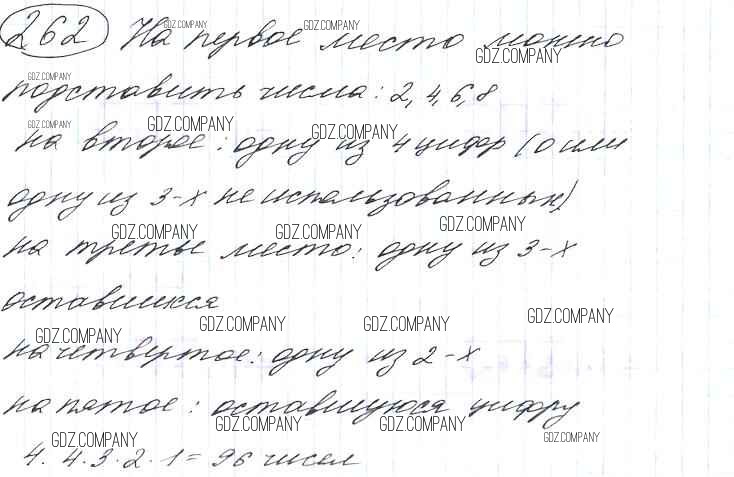 262 На первое место можно
подставить числа: 2, 4, 6, 8
на второе: одну из 4 цифр (0 или
одну из 3-х не использованных)
на третье место: одну из 3-х
оставшихся
на четвертое: одну из 2-х
на пятое: оставшуюся цифру
4 · 4 · 3 · 2 · 1 = 96 чисел
GDZ.COMPANY GDZ.COMPANY GDZ.COMPANY
GDZ.COMPANY
GDZ.COMPANY GDZ.COMPANY GDZ.COMPANY
GDZ.COMPANY GDZ.COMPANY GDZ.COMPANY
GDZ.COMPANY GDZ.COMPANY GDZ.COMPANY GDZ.COMPANY
GDZ.COMPANY GDZ.COMPANY GDZ.COMPANY GDZ.COMPANY